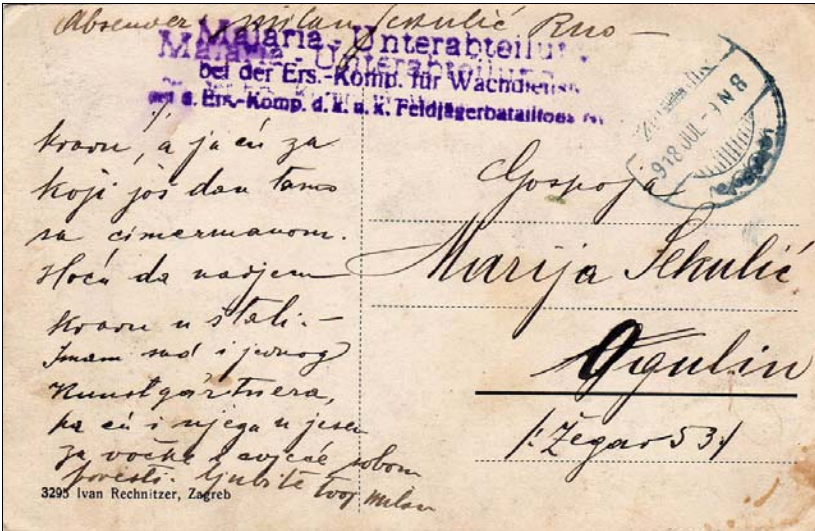 Absender: Milan Sekulić
Malaria-Unterabteilung
Malaria-Unterabteilung
bei der Ers.-Komp. für Wachdienst
bei d. Ers.-Komp. d. k. u. k. Feldjägerbataillons
918 JUL -9 N 8
kravu, a ja ću za
koji još dan tamo
sa cimermanom.
Hoću da nadjem
kravu u štali.-
Imam sad i jednog
Kunstgärtnera,
pa ću i njega u jesen
za voćke i cvjeće sobom
povesti. Ljubi te tvoj Milan
Gospoja
Marija Sekulić
Ogulin
/: Žegar 53 :/
3295 Ivan Rechnitzer, Zagreb